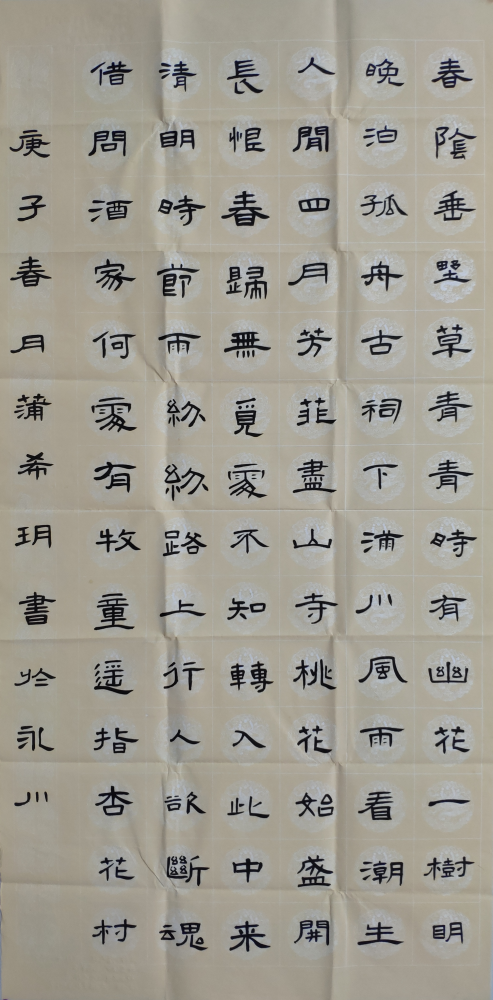 春陰垂埜草青青時有幽花一樹明
晚泊孤舟古祠下滿川風雨看潮生
人閒四月芳菲盡山寺桃花始盛開
長恨春歸無覓處不知轉入此中来
清明時節雨紛紛路上行人欲斷魂
借問酒家何處有牧童遥指杏花村
庚子春月蒲希玥書於永川